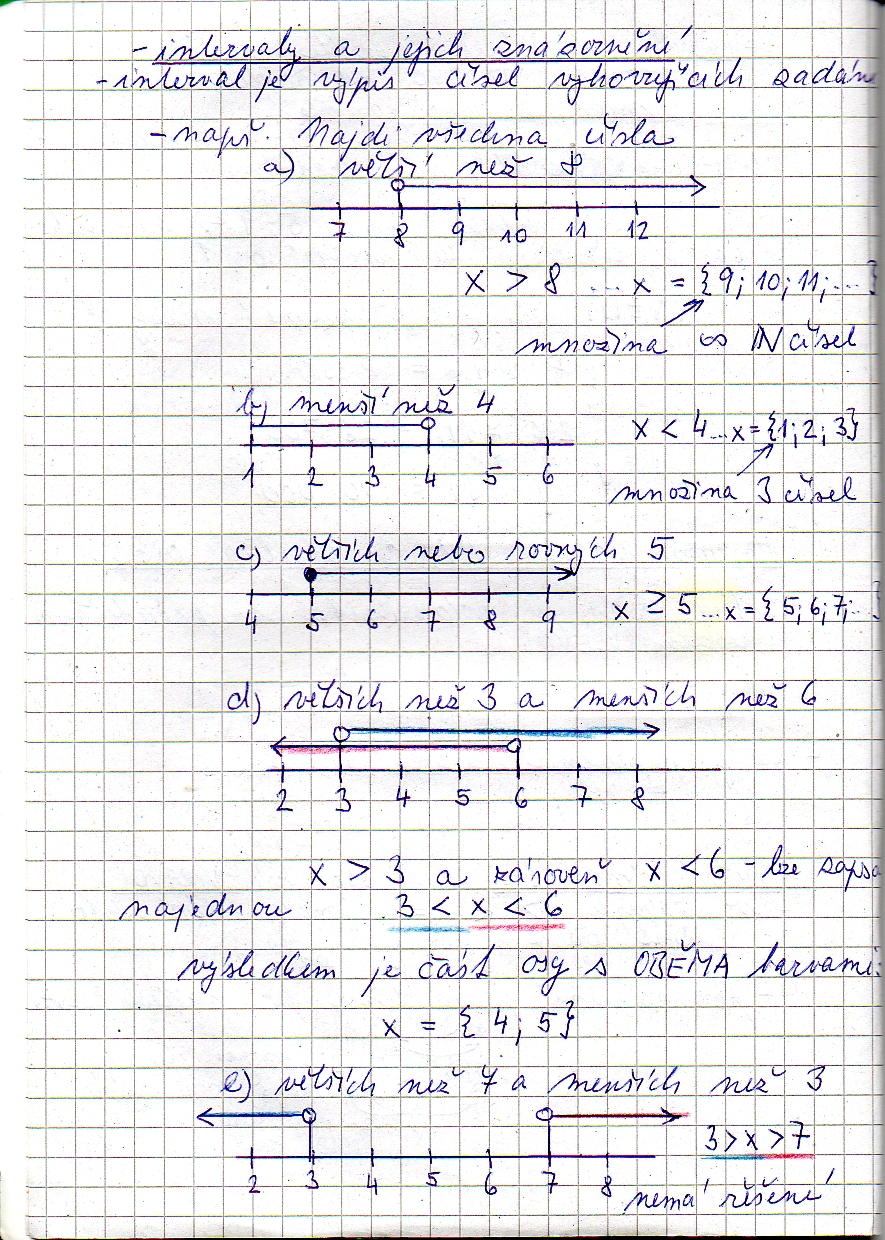 - intervaly a jejich znázornění
- interval je výpis čísel vyhovujících zadání
- např. Najdi všechna čísla
a) větší než 8
7 8 9 10 11 12
x > 8 ... x = {9; 10; 11; ...}
množina ∞ N čísel
b) menší než 4
1 2 3 4 5 6
x < 4 ... x = {1; 2; 3}
množina 3 čísel
c) větších nebo rovných 5
4 5 6 7 8 9
x ≥ 5 ... x = {5; 6; 7; ...}
d) větších než 3 a menších než 6
2 3 4 5 6 7 8
x > 3 a zároveň x < 6 - lze zapsa
najednou 3 < x < 6
výsledkem je část osy s OBĚMA barvami:
x = {4; 5}
e) větších než 7 a menších než 3
2 3 4 5 6 7 8
3 > x > 7
nemá řěšení